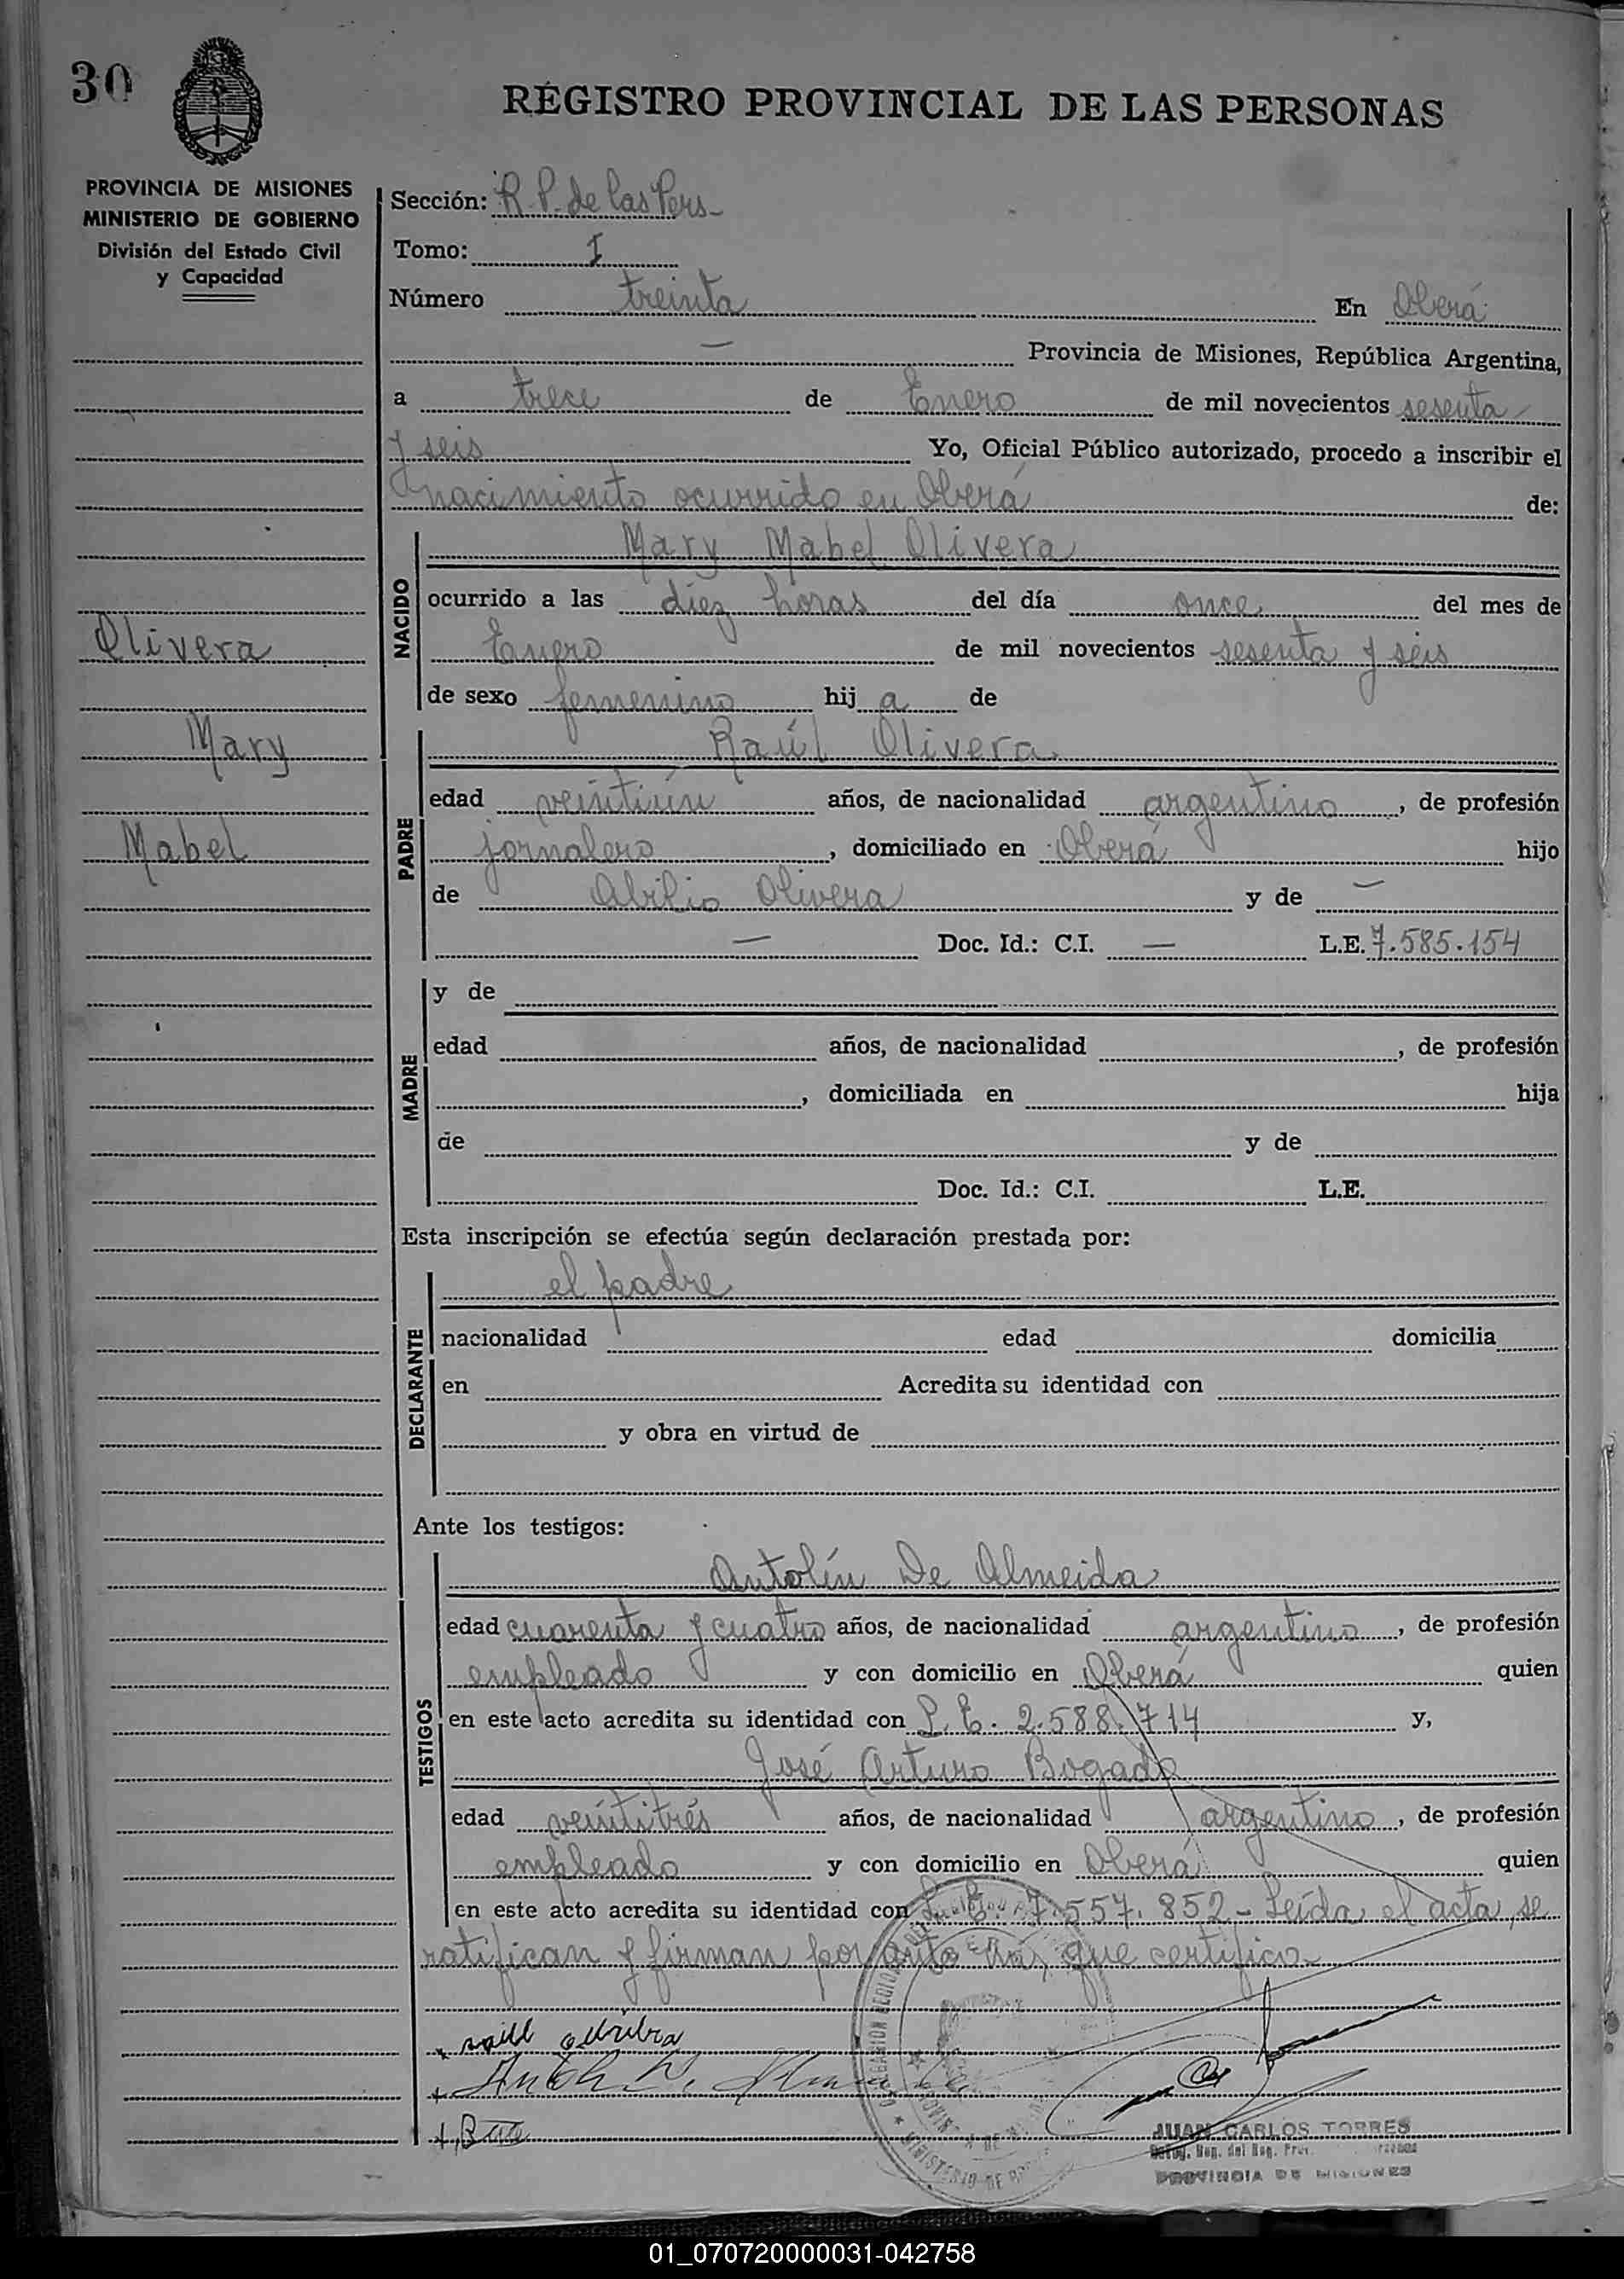 30
REGISTRO PROVINCIAL DE LAS PERSONAS
PROVINCIA DE MISIONES
MINISTERIO DE GOBIERNO
División del Estado Civil
y Capacidad
Sección: R. P. de las Pers-
Tomo: I
Número treinta En Oberá
— Provincia de Misiones, República Argentina,
a trece de Enero de mil novecientos sesenta
y seis Yo, Oficial Público autorizado, procedo a inscribir el
nacimiento ocurrido en Oberá de:
NACIDO
Mary Mabel Olivera
ocurrido a las diez horas del día once del mes de
Enero de mil novecientos sesenta y seis
de sexo femenino hij a de
Olivera
Mary
Mabel
PADRE
Raúl Olivera
edad veintiún años, de nacionalidad argentino, de profesión
jornalero, domiciliado en Oberá hijo
de Abilio Olivera y de —
— Doc. Id.: C.I. — L.E. 7.585.154
MADRE
y de
edad años, de nacionalidad , de profesión
, domiciliada en hija
de y de
Doc. Id.: C.I. L.E.
Esta inscripción se efectúa según declaración prestada por:
DECLARANTE
el padre
nacionalidad edad domicilia
en Acredita su identidad con
y obra en virtud de
Ante los testigos:
TESTIGOS
Antolín De Almeida
edad cuarenta y cuatro años, de nacionalidad argentino, de profesión
empleado y con domicilio en Oberá quien
en este acto acredita su identidad con L. E. 2.588.714 y,
José Arturo Bogado
edad veintitrés años, de nacionalidad argentino, de profesión
empleado y con domicilio en Oberá quien
en este acto acredita su identidad con L. E. 7.557.852 - Leída el acta, se
ratifican y firman por ante mí, que certifico
JUAN CARLOS TORRES
PROVINCIA DE MISIONES
01_070720000031-042758